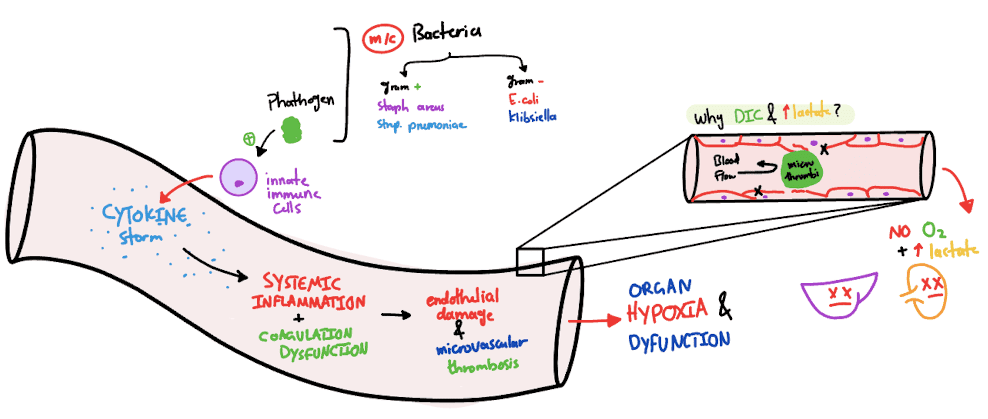 m/c Bacteria
gram + gram -
Staph areus E.coli
Strp. pnemoniae Klibsiella
Phathogen
+
innate
immune
cells
CYTOKINE
Storm
SYSTEMIC
INFLAMMATION
+
COAGULATION
DYSFUNCTION
endothelial
damage
&
microvascular
thrombosis
ORGAN
HYPOXIA &
DYFUNCTION
Why DIC & ↑ lactate?
Blood
Flow
micro
thrombi
x
x
NO O2
+ ↑ lactate
xx
xx